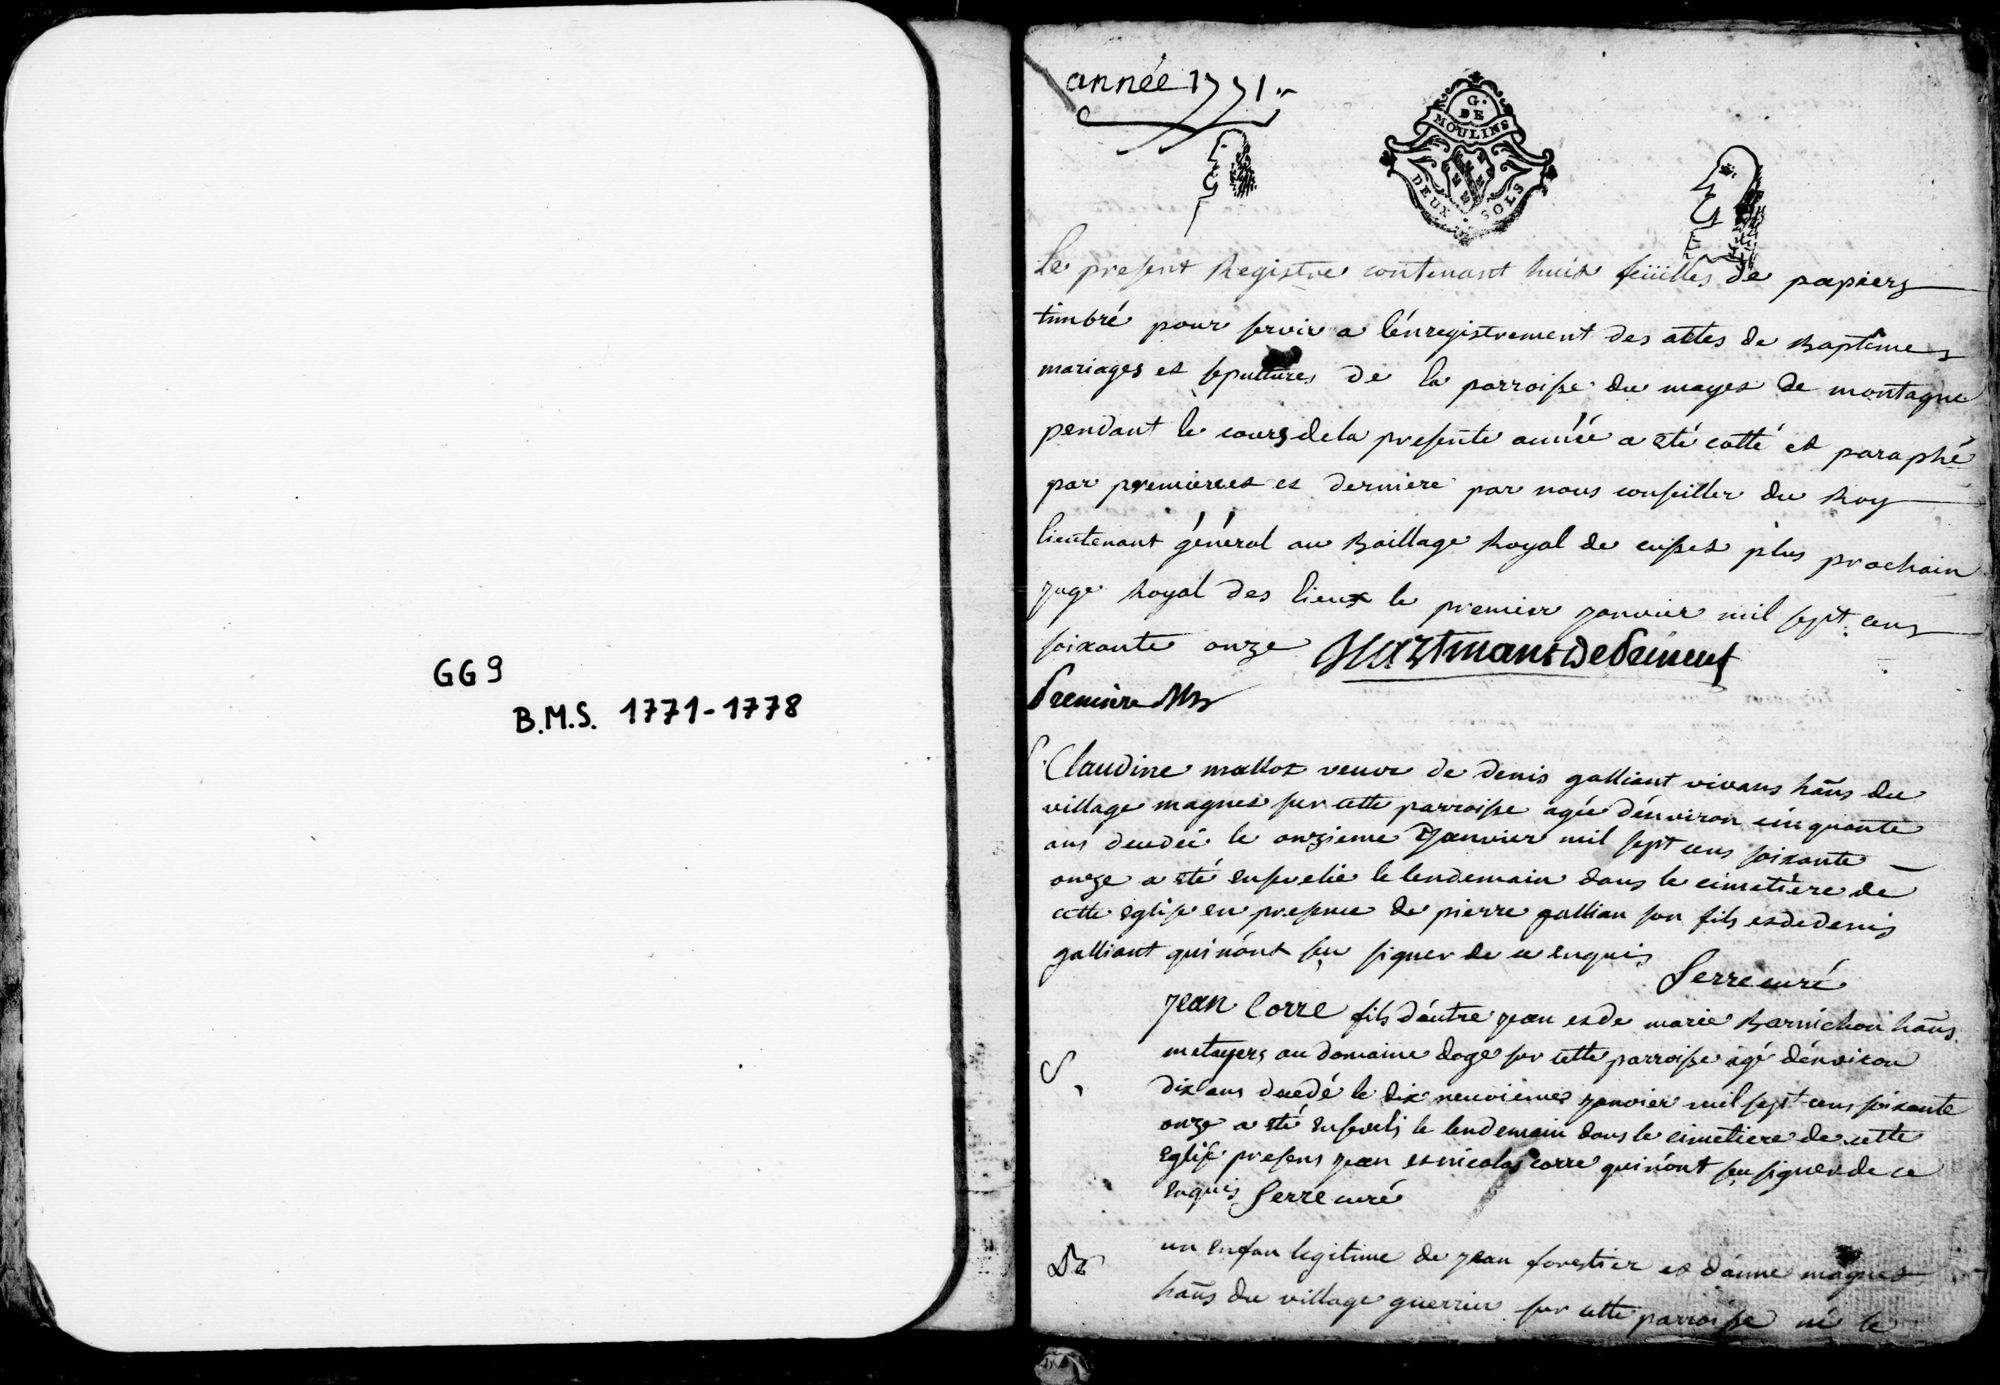 GG 9
B.M.S. 1771-1778
année 1771
G. DE
MOULINS
DEUX SOLS
Le present Registre contenant huit feüilles de papiers
timbré pour servir a l'énregistrement des actes de Baptêmes
mariages et sepultures de la parroisse du mayet de montagne
pendant le cours de la presente année a eté cotté et paraphé
par premierre et derniere par nous conseiller du Roy
lieutenant général au Baillage Royal de cusset plus prochain
juge Royal des lieux le premier janvier mil sept cens
soixante onze
premiere
Claudine mallot veuve de denis galliant vivans hāns du
village magnet sur cette parroisse agée d'énviron cinquante
ans decedée le onzieme janvier mil sept cens soixante
onze a eté ensevelie le lendemain dans le cimetière de
cette eglise en presence de pierre gallian son fils et de denis
galliant qui n'ont sçu signer de ce enquis
Serre curé
S
jean Corre fils d'éutre jean et de marie Barnichon hāns
metayers au domaine doge sur cette parroisse agé d'énviron
dix ans decedé le dix neuvieme janvier mil sept cens soixante
onze a eté enseveli le lendemain dans le cimetiere de cette
eglise presens jean et nicolas corre qui n'ont sçu signer de ce
enquis Serre curé
un enfan legitime de jean forestier et d'anne magnet
hāns du village guerrier sur cette parroisse né le